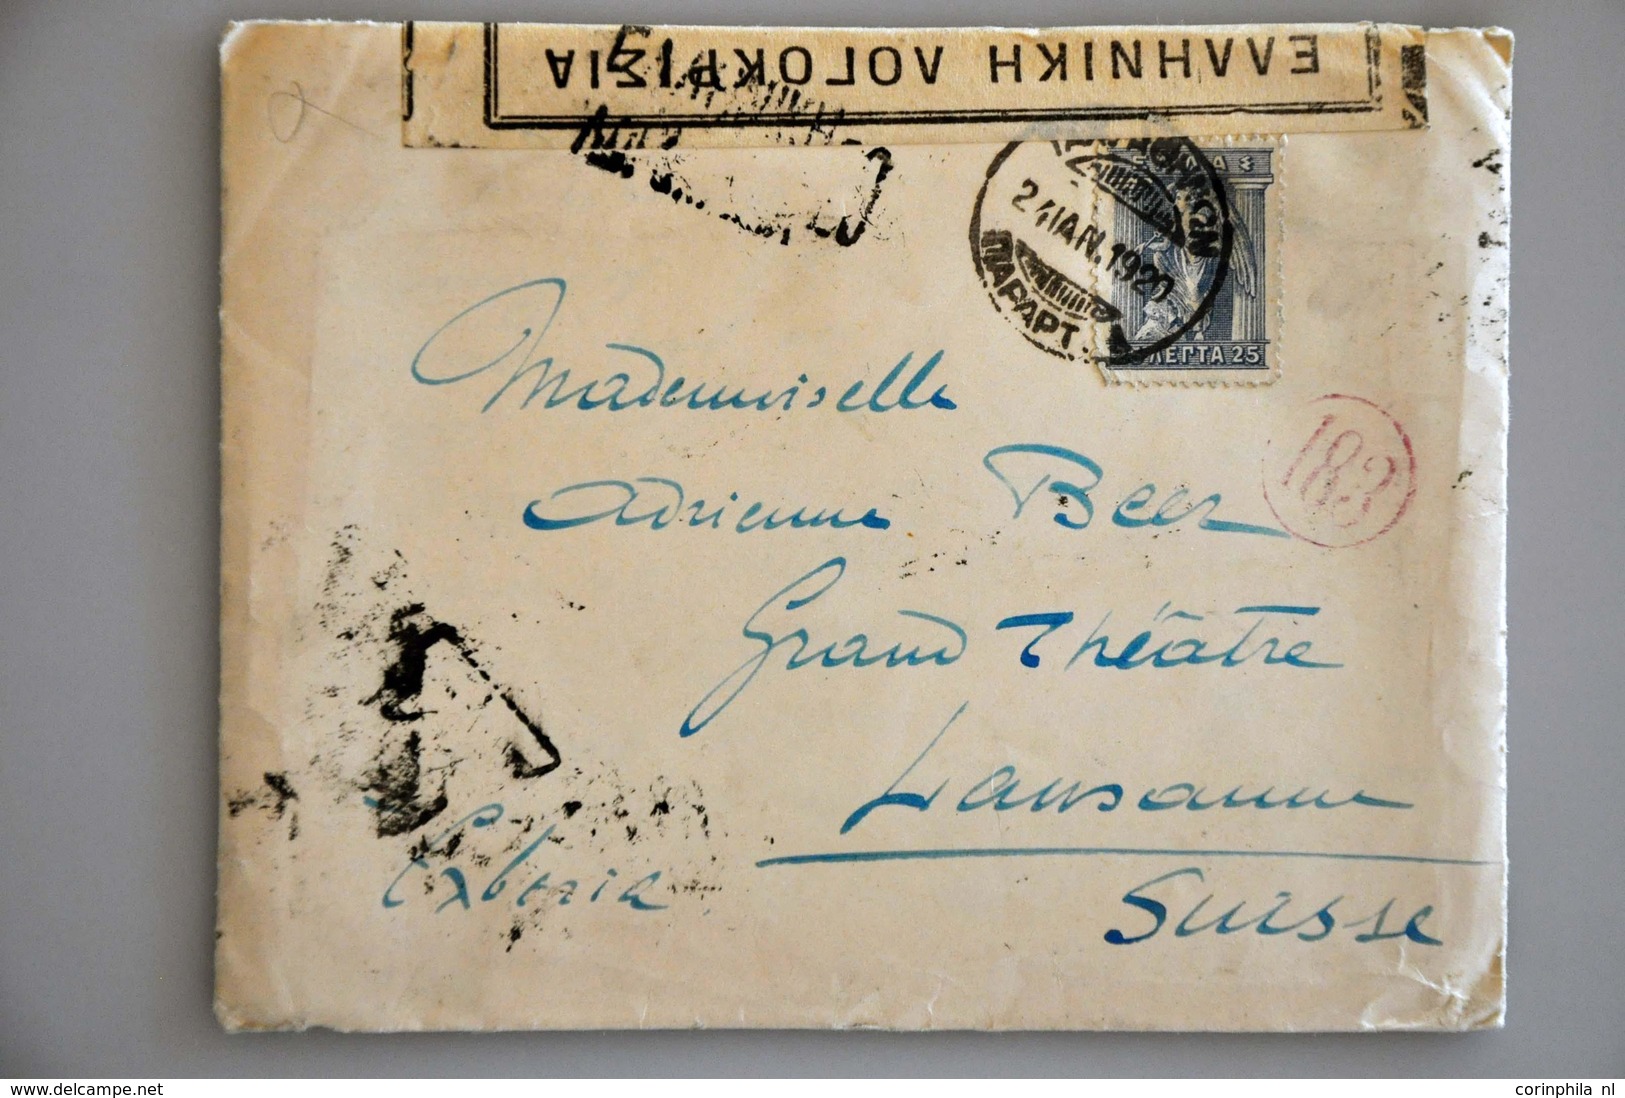 ΕΛΛΗΝΙΚΗ ΛΟΓΟΚΡΙΣΙΑ
ΕΛΛΑΣ
24 ΙΑΝ. 1920
ΠΑΡΑΡΤ.
25 ΛΕΠΤΑ 25
183
Mademoiselle
Adrienne Beer
Grand Théâtre
Lausanne
Suisse
www.delcampe.net
corinphila nl